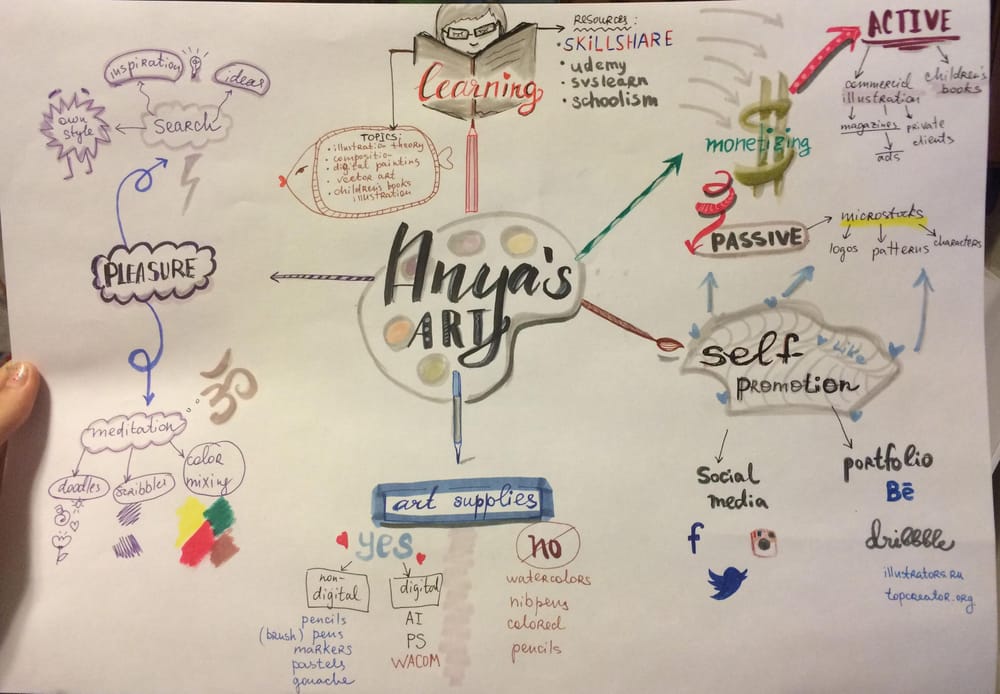 Anya's
ART
learning
RESOURCES:
• SKILLSHARE
• udemy
• svslearn
• schoolism
TOPICS:
• illustration theory
• composition
• digital painting
• vector art
• children's books
illustration
$
monetizing
ACTIVE
commercial
illustration
children's
books
magazines
private
clients
ads
PASSIVE
microstocks
logos
patterns
characters
self-
promotion
Like
Social
media
f
portfolio
Bē
dribbble
illustrators.ru
topcreator.org
art supplies
yes
non-
digital
pencils
(brush) pens
markers
pastels
gouache
digital
AI
PS
WACOM
no
watercolors
nibpens
colored
pencils
PLEASURE
search
inspiration
ideas
own
style
meditation
ॐ
doodles
scribbles
color
mixing